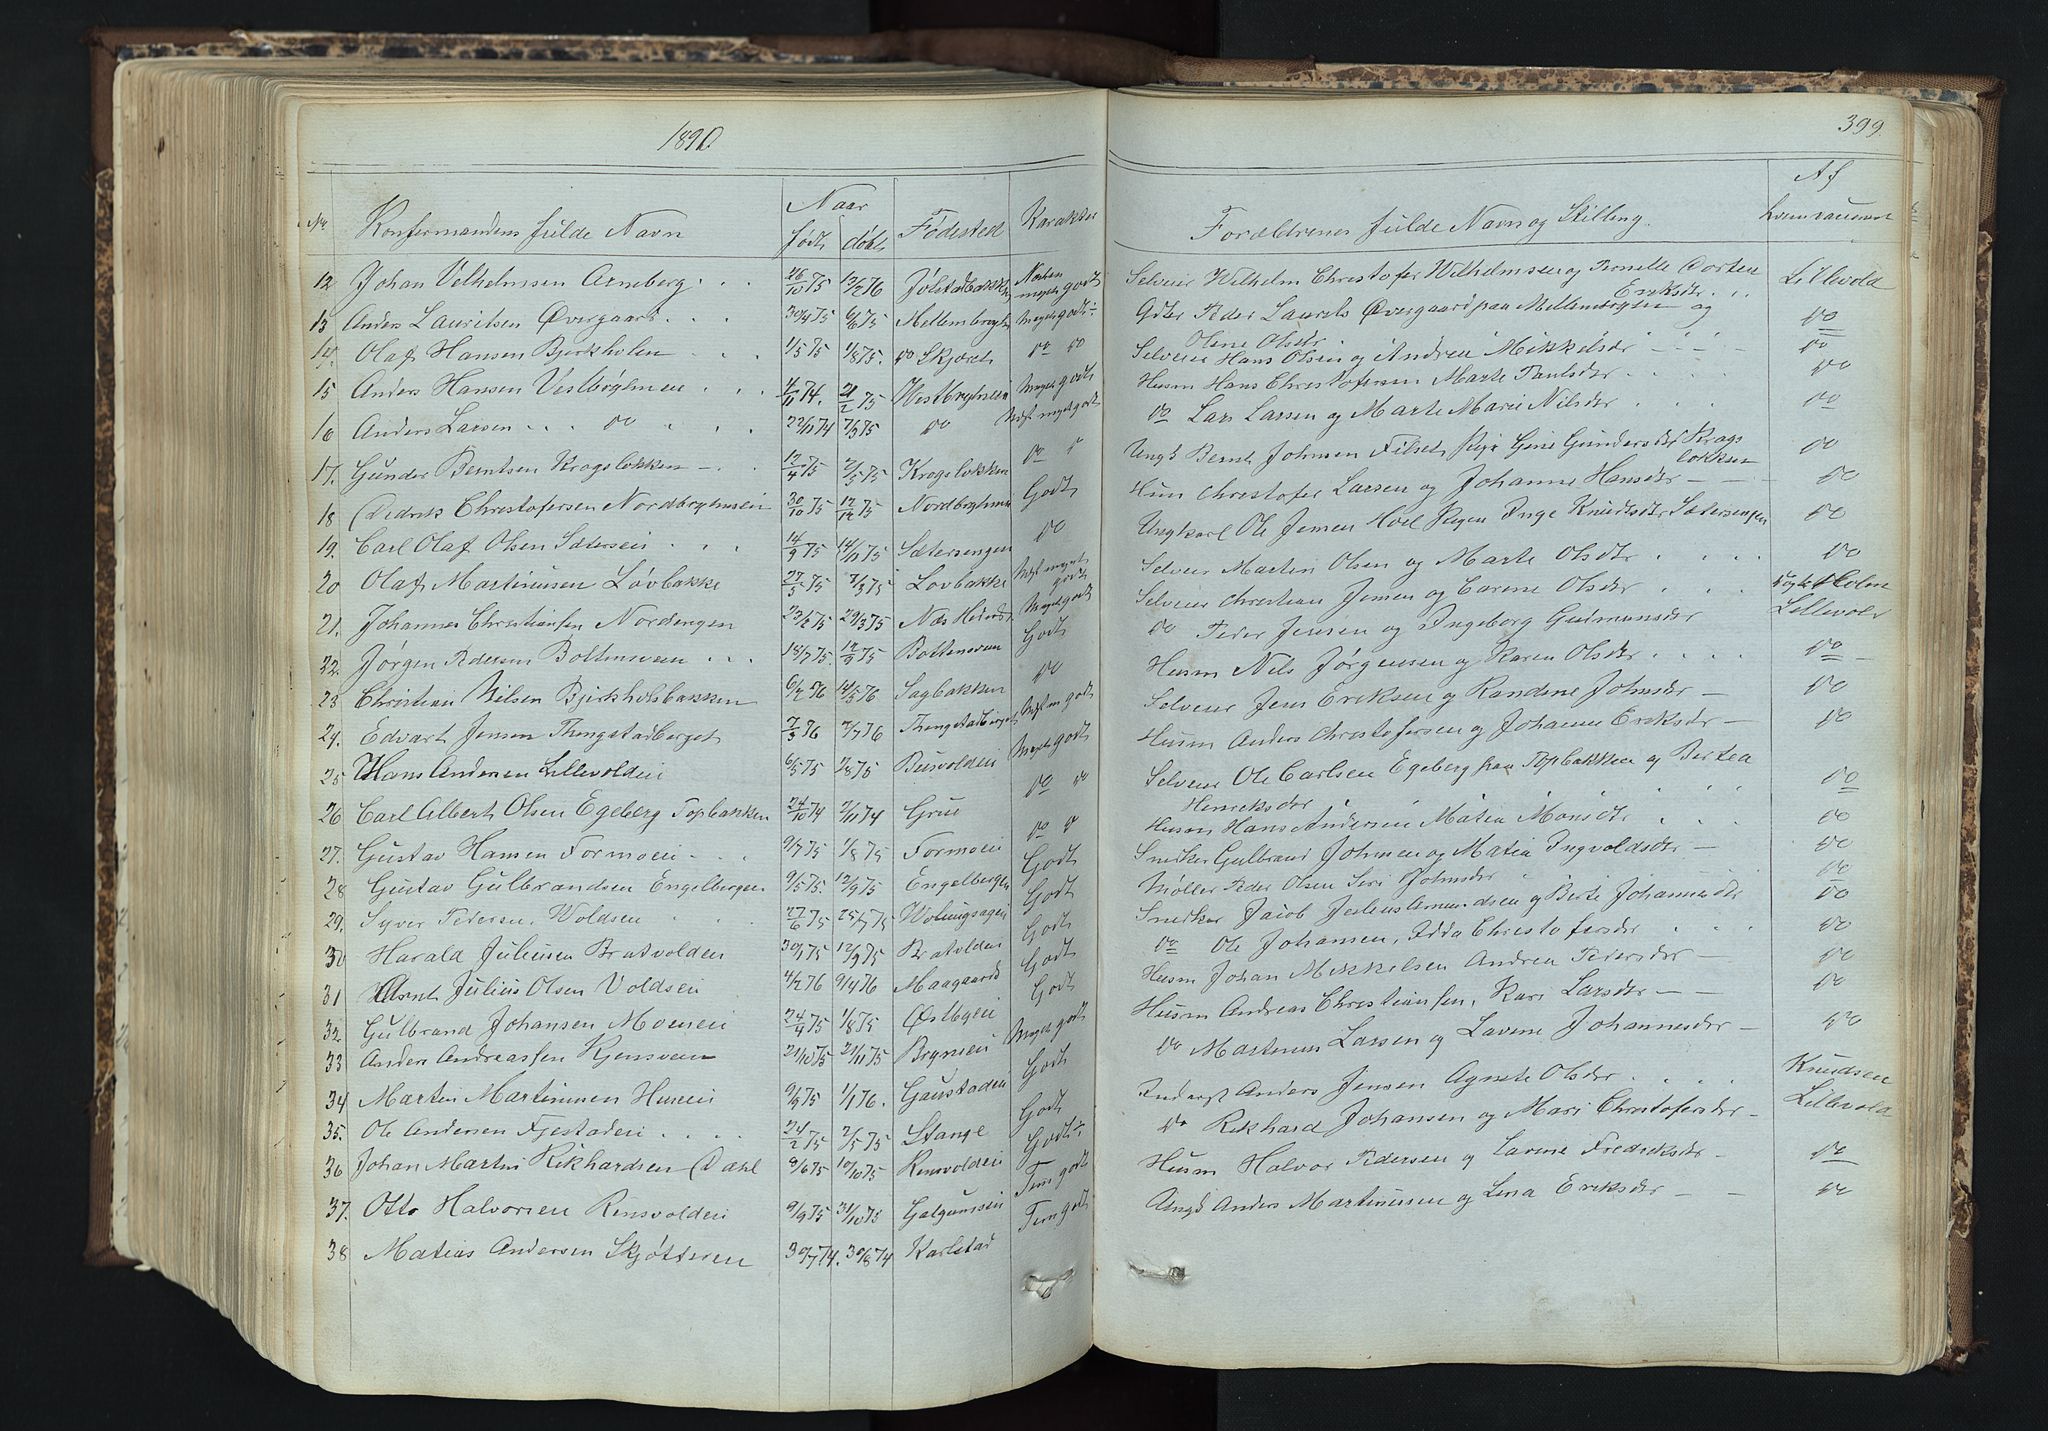 1890
399
No Konfermandens fulde Navn Naar født døbt Fødested Karakter Forældrenes fulde Navn og Stilling Af
12 Johan Vilhelmsen Arneberg 26/10 75 13/2 76 Jølstadbakken Næsten meget godt Selveier Wilhelm Christofer Wilhelmsen og Pernelle Dortea Eriksdr Lillevold
13 Anders Lauritsen Øvergaard 30/4 75 6/6 75 Mellembryhn Meget godt Gdbr Peder Laurits Øvergaard paa Mellembryhn og Oline Olsdr do
14. Olaf Hansen Bjerkholen 1/5 75 1/8 75. do Skjæret do do Selveier Hans Olsen og Andrea Mikkelsdr do
15 Anders Hansen Vestbryhnen 4/11 74. 21/2 75 Westbryhnen Meget godt Husm Hans Christofersen Marte Paulsdr do
16 Anders Larsen do 22/11 74 7/3 75 do Næst meget godt do Lars Larsen og Marte Marie Nilsdr do
17. Gunder Berntsen Kragsløkken 12/4 75 2/5 75 Kragsløkken do Ungk Bernt Johnsen Filset Pige Gine Gundersdr Kragsløkken do
18 Didrik Christofersen Nordbryhnsen 30/10 75 12/12 75 Nordbryhnen Godt Husm Christofer Larsen og Johanne Hansdr do
19. Carl Olaf Olsen Sætersen 14/9 75 14/11 75 Sætersengen do Ungkarl Ole Jensen Hoel Pigen Inge Knudsdr Sætersengen do
20 Olaf Martinusen Løvbakke 27/5 75 7/3 75 Løvbakke Næst meget godt Selveier Martin Olsen og Marte Olsdr do
21. Johannes Christiansen Nordengen 22/2 75 29/3 75 Næs Hedem Meget godt Selveier Christian Jensen og Carine Olsdr
22. Jørgen Pedersen Boltensveen 18/7 75. 12/9 75 Boltensveen Godt do Peder Jensen og Ingeborg Gudmunsdr Lillevold
23 Christian Nilsen Bjerkholsbakken 6/2 76 14/5 76 Sagbakken do Husm Nils Jørgensen og Karen Olsdr do
24. Edvart Jensen Thengstadberget 7/3 76 7/7 76 Thengstadberget Næst m godt Selveier Jens Eriksen og Randine Johnsdr do
25 Hans Andersen Lillevolden 6/5 75 1/8 75 Buvolden Meget godt Husm Anders Christofersen og Johanne Eriksdr do
26 Carl Albert Olsen Egeberg Topbakken 24/10 74 2/11 74 Grue do do Selveier Ole Carlsen Egeberg paa Topbakken og Bertea Henriksdr do
27. Gustav Hansen Formoen 9/7 75 1/8 75 Formoen do do Husm Hans Andersen Matea Monsdr do
28 Gustav Gulbrandsen Engelbergen 9/5 75. 12/9 75 Engelbergen Godt Snedker Gulbrand Johnsen og Matia Ingvoldsdr do
29. Syver Pedersen Woldsen 27/6 75 25/7 75 Godt Møller Peder Olsen Siri Johnsdr do
30 Harald Juliusen Bratvolden 30/1 75 12/9 75 Bratvolden Godt Snedker Jacob Julius Amundsen og Berte Johannesdr do
31 Arnt Julius Olsen Voldsen 4/2 76 9/4 76 Maagaard Godt do Ole Johansen, Edda Christofersdr do
32. Gulbrand Johansen Moenen 24/4 75 1/8 75 Østbyen Godt Husm Johan Mikkelsen Andrea Pedersdr do
33 Anders Andreassen Kjensveen 21/10 75 21/11 75 Brynsen Meget godt Husm Andreas Christiansen, Kari Larsdr do
34 Marten Martinusen Husein 9/9 75 1/1 76. Gaustaden Godt do Martinus Larsen og Lavine Johannesdr do
35. Ole Andersen Fjestaden 24/2 75 2/5 75 Stange Godt Inderst Anders Jensen Agnete Olsdr Knudsen
36 Johan Martin Rikhardsen Dahl 9/6 75 10/10 75 Rensvolden Godt do Rikhard Johansen og Mari Christofersdr Lillevold
37. Otto Halvorsen Rensvolden 9/9 75 31/10 75 Galgumsen Tem godt Husm Halvor Pedersen og Lavine Fredriksdr do
38 Matias Andersen Skjøttsren 30/7 74. 30/8 74 Karlstad Tem godt Ungk Anders Martinusen og Lina Eriksdr do